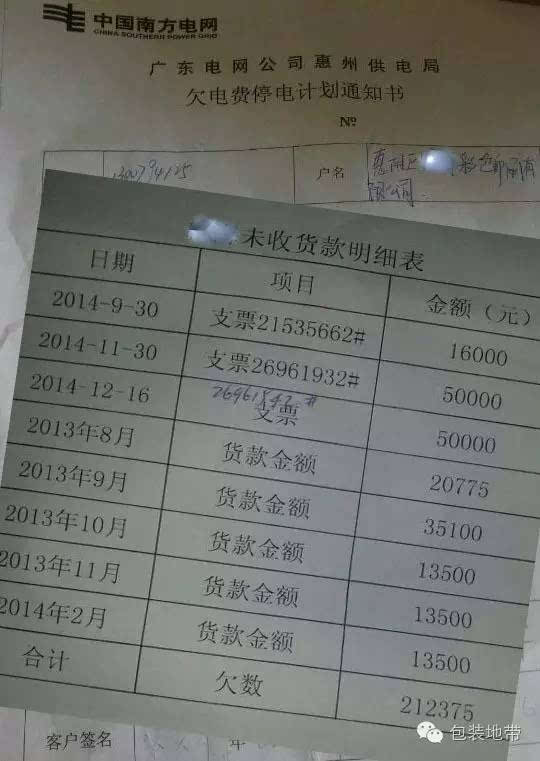 中国南方电网
CHINA SOUTHERN POWER GRID
广东电网公司惠州供电局
欠电费停电计划通知书
№
户名
彩色印刷有
限公司
未收货款明细表
日期 项目 金额（元）
2014-9-30 支票21535662# 16000
2014-11-30 支票26961932# 50000
2014-12-16 支票 50000
2013年8月 货款金额 20775
2013年9月 货款金额 35100
2013年10月 货款金额 13500
2013年11月 货款金额 13500
2014年2月 货款金额 13500
合计 欠数 212375
客户签名
年
包装地带